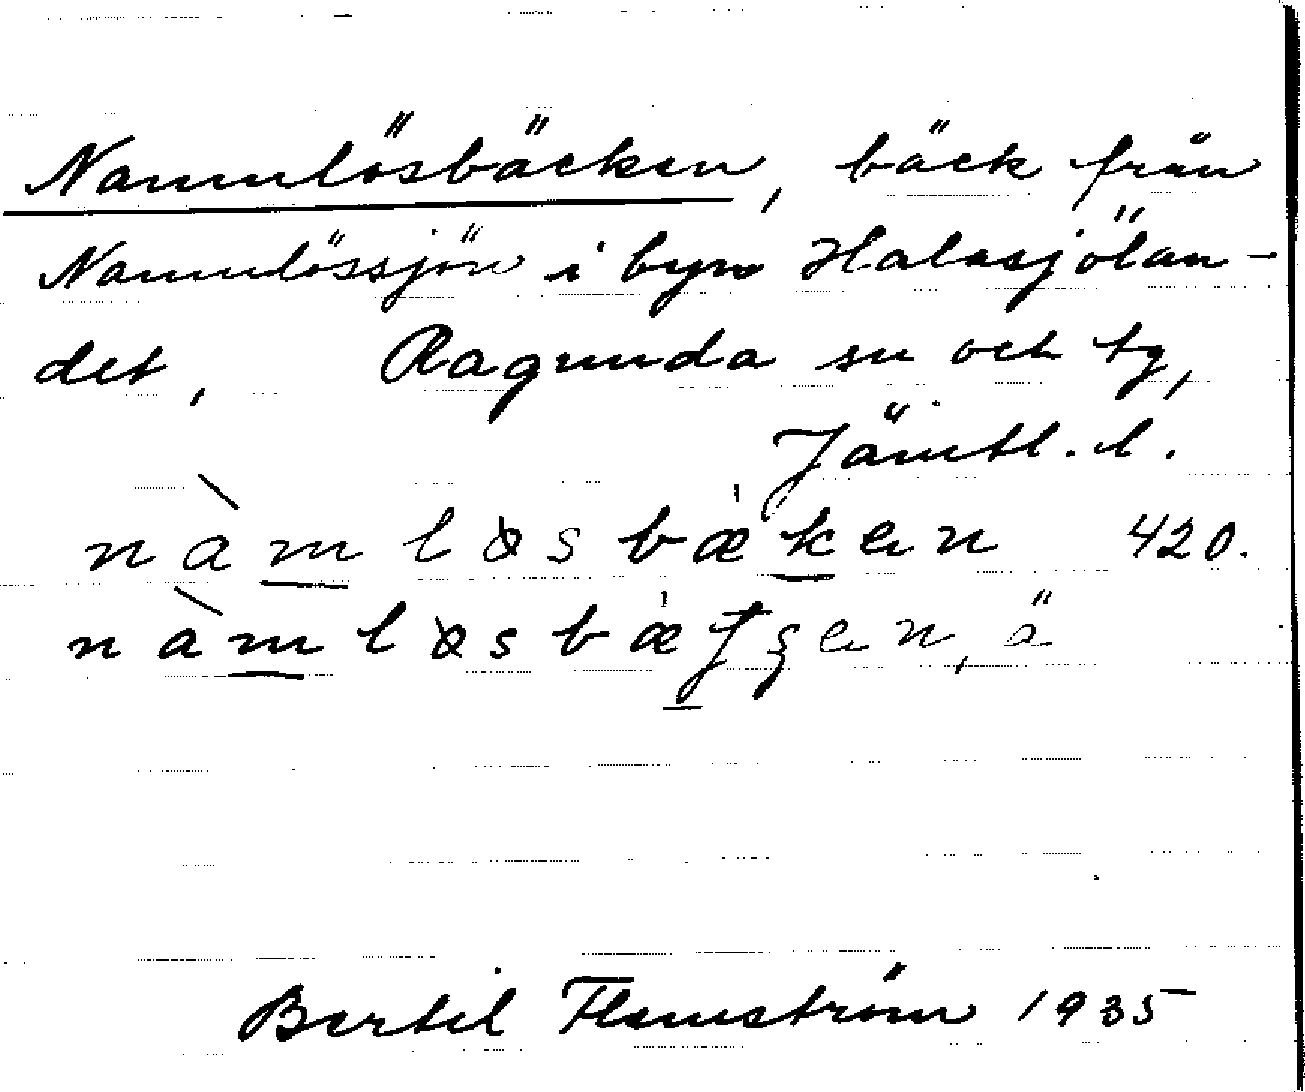 Namnlösbäcken, bäck från
Namnlössjön i byn Halasjölan-
det, Ragunda sn och tg,
Jämtl. l.
nàmløsbæken 420.
nàmløsbæ ä
Bertil Flemström 1935